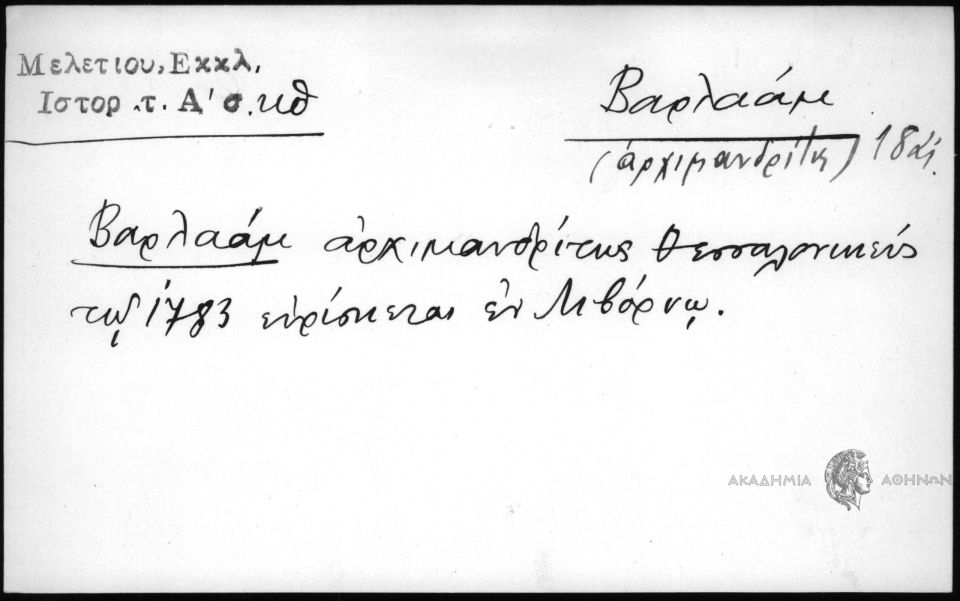 Μελετιου, Εκκλ.
Ιστορ .τ. Α' σ. κθ
Βαρλαάμ
(ἀρχιμανδρίτης) 18 αἰ.
Βαρλαάμ ἀρχιμανδρίτης Θεσσαλονικεύς
τῷ 1783 εὑρίσκεται ἐν Λιβόρνῳ.
ΑΚΑΔΗΜΙΑ ΑΘΗΝΩΝ